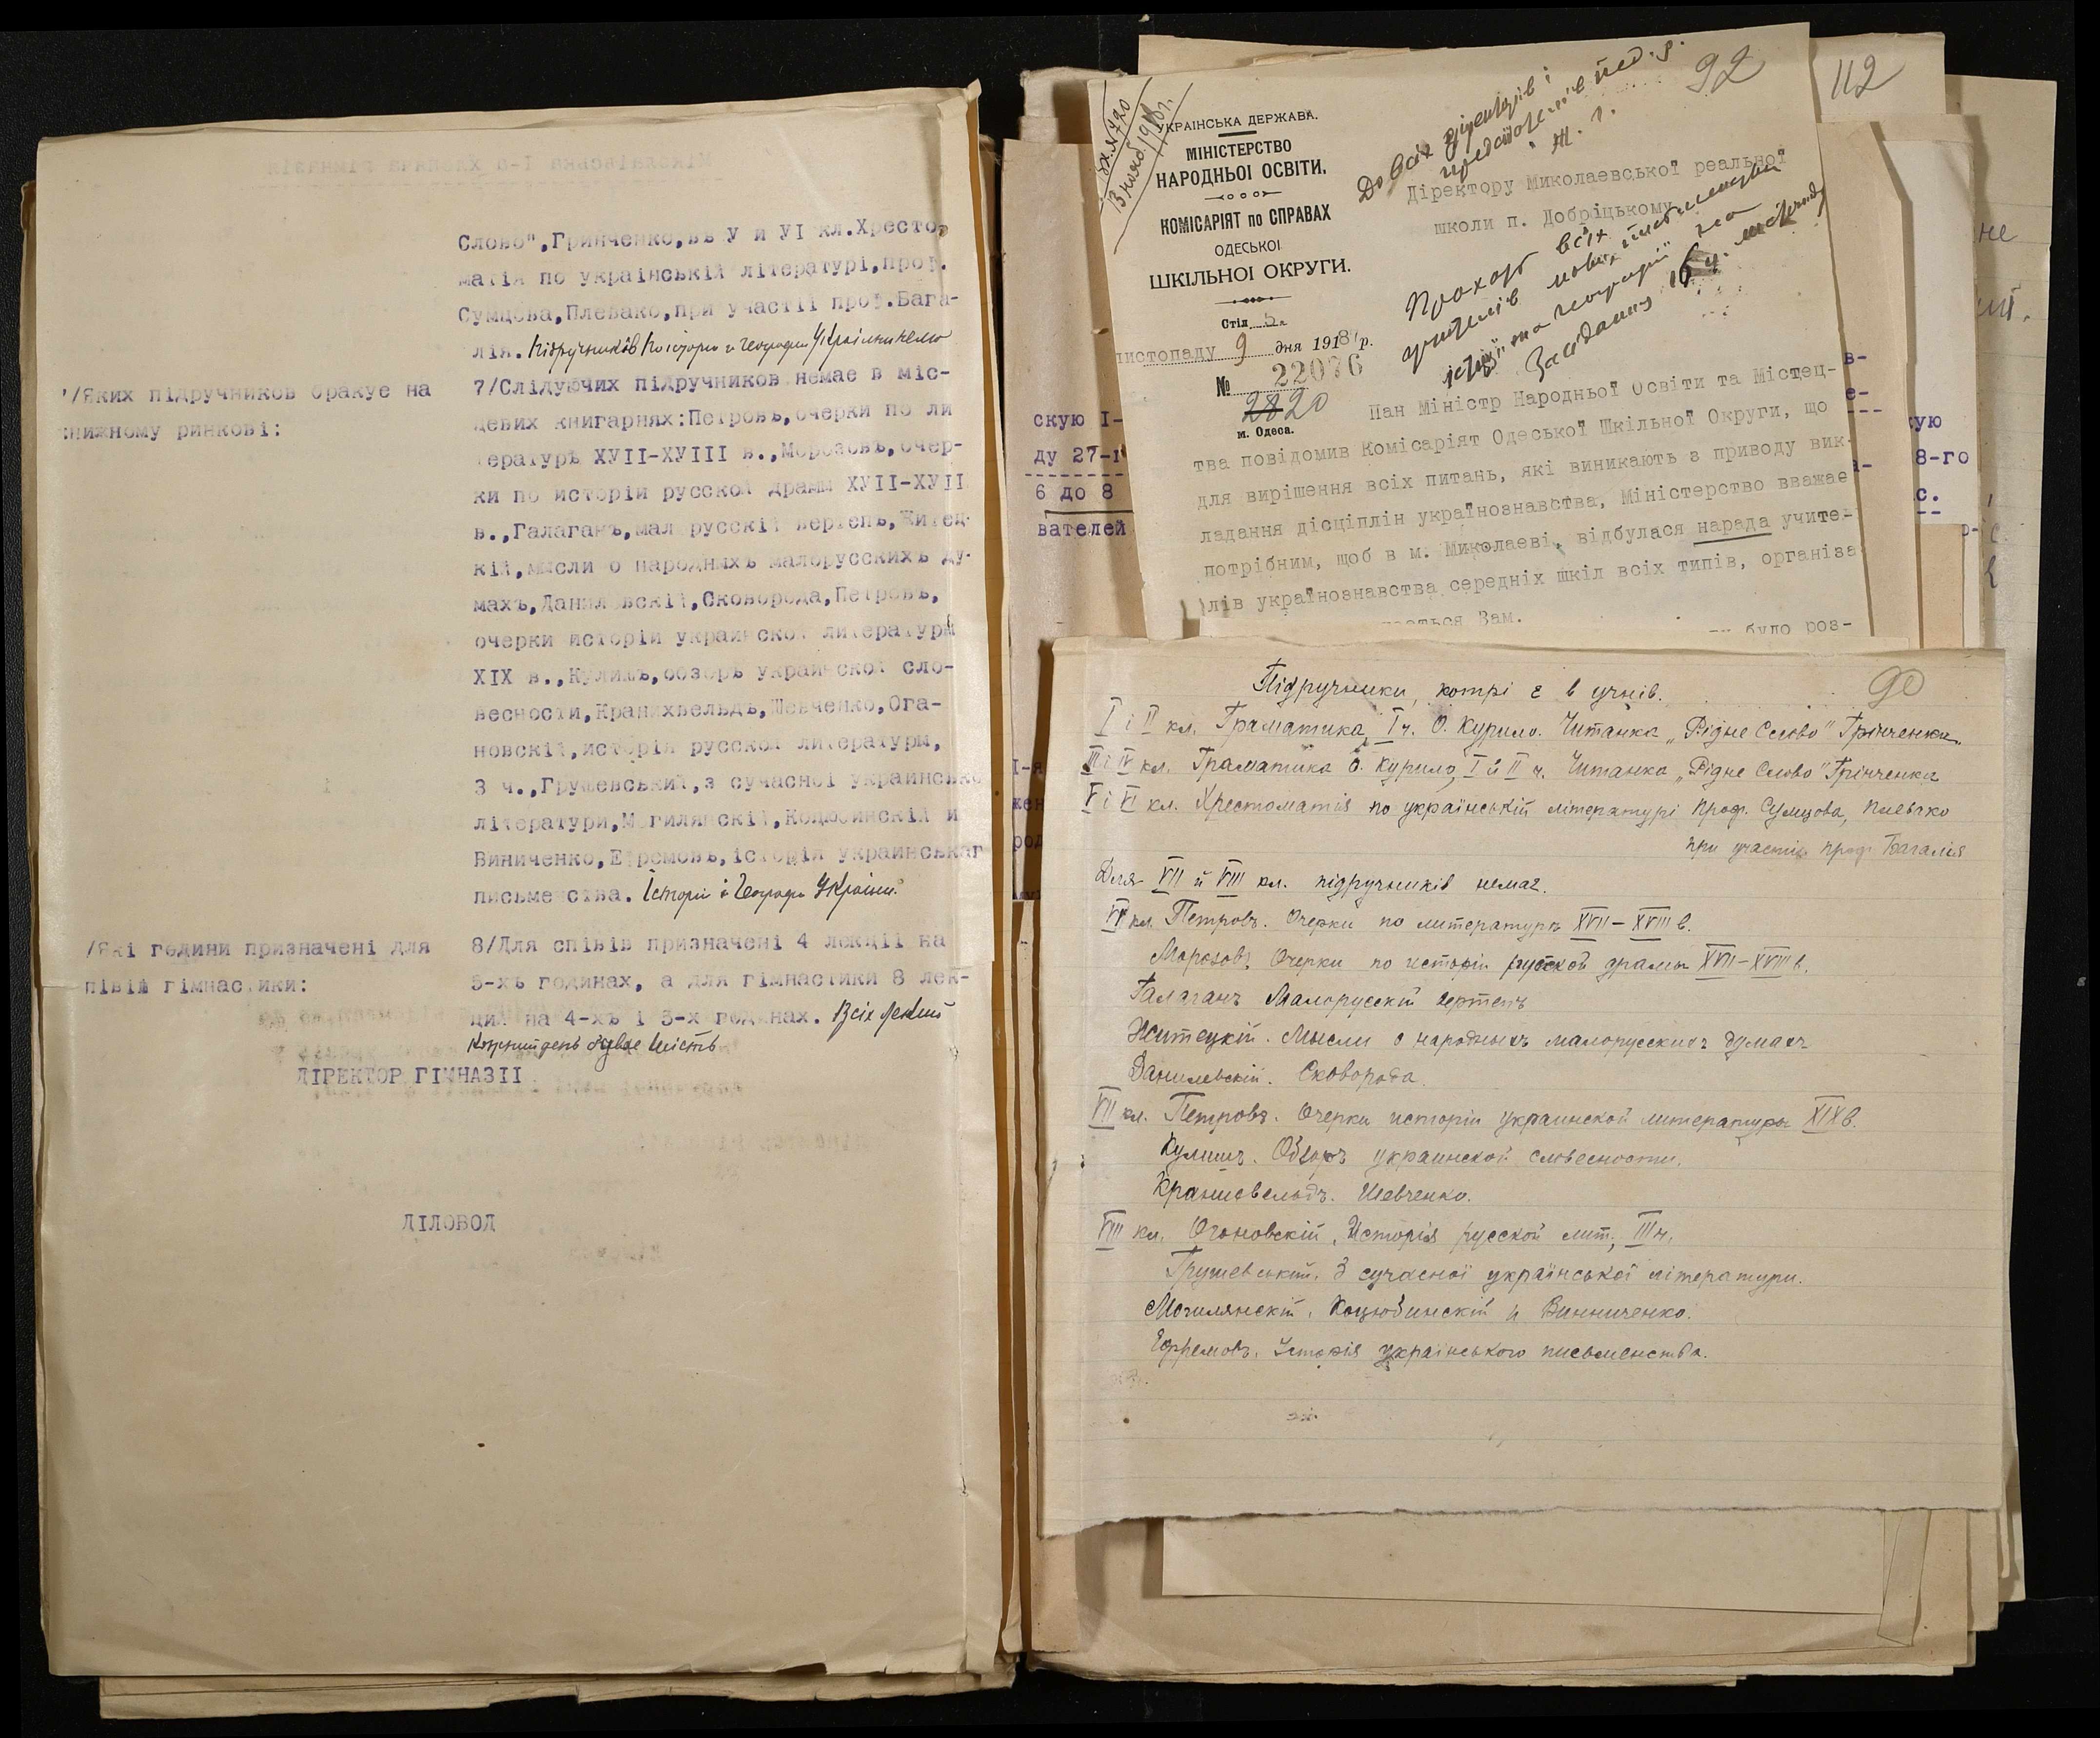 Слово",Гринченко,въ У и УІ кл.Хресто-
матія по українській літературі,проф.
Сумцова,Плевако,при участії проф.Бага-
лія. Підручників по історіи и Географіи України нема
7/Яких підручников бракує на
книжному ринкові:
7/Слідуючих підручников немає в міс-
цевих книгарнях:Петровъ,очерки по ли
тературѣ ХУІІ-ХУІІІ в.,Морозовъ,очер-
ки по исторіи русской драмы ХУІІ-ХУІІ
в.,Галаганъ,мал русскій вертепъ,Житец-
кій,мысли о народныхъ малорусскихъ ду-
махъ,Данилевскій,Сковорода,Петровъ,
очерки исторіи украинской литературы
ХІХ в.,Кулишъ,обзоръ украинской сло-
весности,Кранихвельдъ,Шевченко,Ога-
новскій,исторія русской литературы,
3 ч.,Грушевський,з сучасної украинсько
літератури,Могилянскій,Коцюбинскій и
Виниченко,Ефремовъ,історія украинськаг
письменства. Історіи і Географіи України.
/Які години призначені для
співів гімнастики:
8/Для співів призначені 4 лекції на
5-хъ годинах, а для гімнастики 8 лек-
цій на 4-хъ і 5-х годинах. Всіх лекций
кожний день буває шість
ДІРЕКТОР ГІМНАЗІІ
ДІЛОВОД
скую І-
ду 27-г
6 до 8
вателей
92
112
Вх. № 720
13 нояб 1918 г.
УКРАІНСЬКА ДЕРЖАВА.
МІНІСТЕРСТВО
НАРОДНЬОІ ОСВІТИ.
КОМІСАРІЯТ по СПРАВАХ
ОДЕСЬКОІ
ШКІЛЬНОІ ОКРУГИ.
Стіл 5
листопаду 9 дня 1918 р.
№ 22076
2820
м. Одеса.
До всіх діректорів і
Діректору Миколаевської реальної
школи п. Добріцькому
Прохорт всіх
учителів мови,
історії та географії на
Засідання
Пан Міністр Народньої Освіти та Містец-
тва повідомив Комісаріят Одеської Шкільної Округи, що
для вирішення всіх питань, які виникають з приводу вик-
ладання дісціплін українознавства, Міністерство вважае
потрібним, щоб в м. Миколаеві, відбулася нарада учите-
лів українознавства середніх шкіл всіх типів, організа
ається Зам.
було роз-
не
сую
8-го
с.
90
Підручники, котрі є в учнів.
I і II кл. Граматика, I ч. О. Курило. Читанка „Рідне Слово" Грінченка.
III і IV кл. Граматика О. Курило, I й II ч. Читанка „Рідне Слово" Грінченка
V і VI кл. Хрестоматія по українській літературі проф. Сумцова, Плевако
при участи проф. Багалія
Для VII й VIII кл. підручників немає.
VI кл. Петровъ. Очерки по литературѣ XVII–XVIII в.
Морозовъ. Очерки по исторіи русской драмы XVII–XVIII в.
Галаганъ Малорусскій вертепъ
Житецкій. Мысли о народныхъ малорусскихъ думахъ
Данилевскій. Сковорода.
VII кл. Петровъ. Очерки исторіи украинской литературы XIX в.
Кулишъ. Обзоръ украинской словесности.
Кранихвельдъ. Шевченко.
VIII кл. Огоновскій, Исторія русской лит., III ч.
Грушевський. З сучасної української літератури.
Могилянскій, Коцюбинскій и Винниченко.
Ефремовъ. Історія українського письменства.